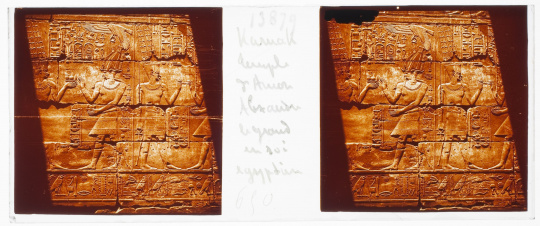 13879
Karnak
temple
d'Amon
Alexandre
le grand
en roi
égyptien